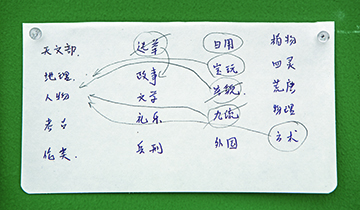 天文部. 选举 日用 植物
地理. 政事 宝玩 四灵
人物 文学 容貌 荒唐
考古 礼乐 九流 物理
伦类. 兵刑 外国 方术